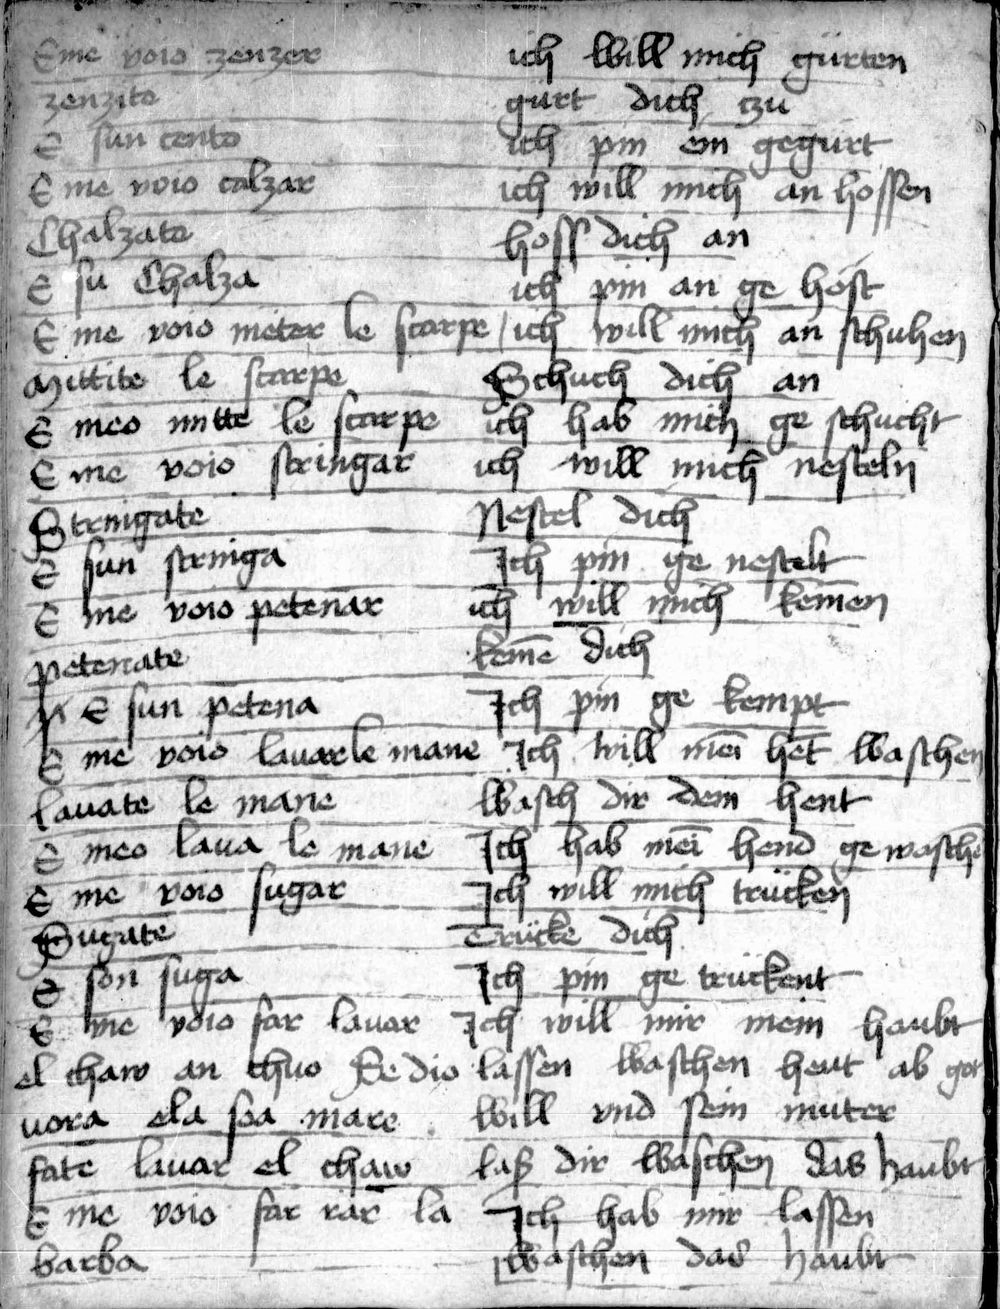 E me voio zenzer ich will mich gürten
zenzite gürt dich czu
E sun cento ich pin ein gegürt
E me voio calzar ich will mich an hossen
Chalzate hoss dich an
E su Chalza ich pin an ge host
E me voio meter le scarpe / ich will mich an schuhen
Mittite le scarpe Schuch dich an
E meo mitte le scarpe ich hab mich ge schucht
E me voio stringar ich will mich nesteln
Stringate Nestel dich
E sun stringa Ich pin ge nestelt
E me voio petenar ich will mich kemen̄
petenate kem̄e dich
E sun petena Ich pin ge kempt
E me voio lauar le mane Ich will mei̅ he̅t waschen
lauate le mane Wasch dir dein hent
E meo laua le mane Ich hab mei̅ hend ge wasche̅
E me voio sugar Ich will mich trücken
Sugate Trücke dich
E son suga Ich pin ge trückent
E me voio far lauar Ich will mir mein haubt
el chaw an chuo Se dio lassen waschen heut ab got
vora ela soa mare will vnd sein muter
fate lauar el chaw laß dir waschen das haubt
E me voio far rar la Ich hab mir lassen
barba waschen das haubt